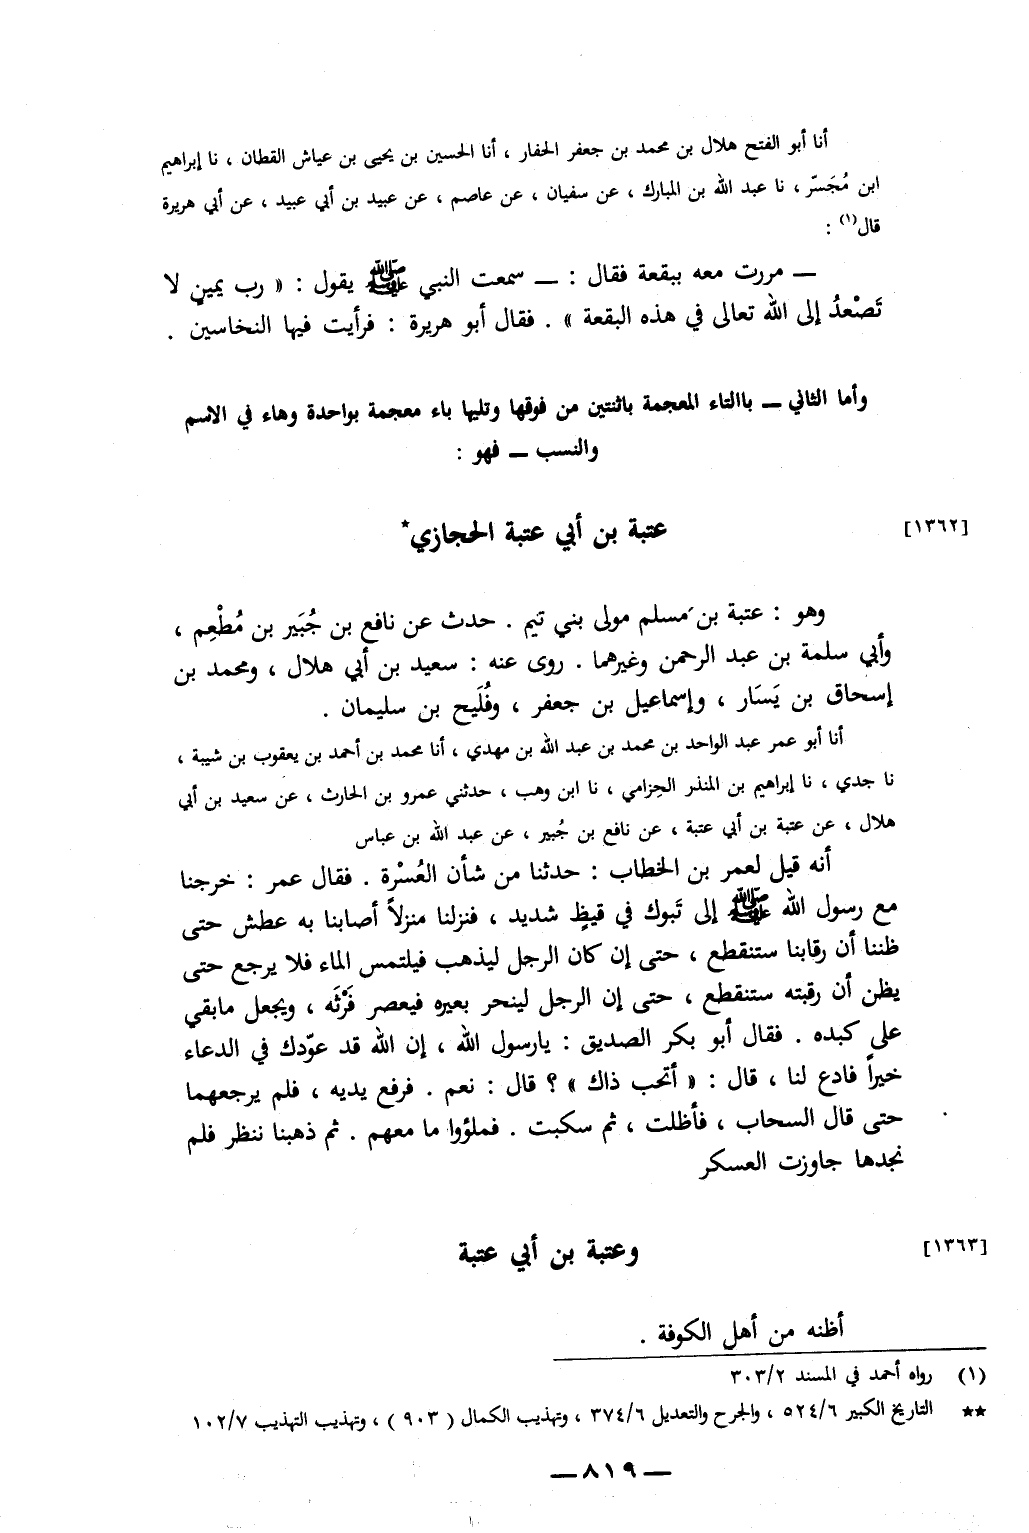 أنا أبو الفتح هلال بن محمد بن جعفر الحفار ، أنا الحسين بن يحيى بن عياش القطان ، نا إبراهيم
ابن مُجَسّر ، نا عبد الله بن المبارك ، عن سفيان ، عن عاصم ، عن عبيد بن أبي عبيد ، عن أبي هريرة
قال(١) :
— مررت معه ببقعة فقال : — سمعت النبي ﷺ يقول : « رب يمينٍ لا
تَصْعدُ إلى الله تعالى في هذه البقعة » . فقال أبو هريرة : فرأيت فيها النخاسين .
وأما الثاني — باالتاء المعجمة باثنتين من فوقها وتليها باء معجمة بواحدة وهاء في الاسم
والنسب — فهو :
[١٣٦٢] عتبة بن أبي عتبة الحجازي*
وهو : عتبة بن مسلم مولى بني تيم . حدث عن نافع بن جُبَير بن مُطْعِم ،
وأبي سلمة بن عبد الرحمن وغيرهما . روى عنه : سعيد بن أبي هلال ، ومحمد بن
إسحاق بن يَسَار ، وإسماعيل بن جعفر ، وفُلَيح بن سليمان .
أنا أبو عمر عبد الواحد بن محمد بن عبد الله بن مهدي ، أنا محمد بن أحمد بن يعقوب بن شيبة ،
نا جدي ، نا إبراهيم بن المنذر الحِزامي ، نا ابن وهب ، حدثني عمرو بن الحارث ، عن سعيد بن أبي
هلال ، عن عتبة بن أبي عتبة ، عن نافع بن جُبير ، عن عبد الله بن عباس
أنه قيل لعمر بن الخطاب : حدثنا من شأن العُسْرة . فقال عمر : خرجنا
مع رسول الله ﷺ إلى تَبوك في قيظٍ شديد ، فنزلنا منزلاً أصابنا به عطش حتى
ظننا أن رقابنا ستنقطع ، حتى إن كان الرجل ليذهب فيلتمس الماء فلا يرجع حتى
يظن أن رقبته ستنقطع ، حتى إن الرجل لينحر بعيره فيعصر فَرْثَه ، ويجعل مابقي
على كبده . فقال أبو بكر الصديق : يارسول الله ، إن الله قد عوّدك في الدعاء
خيراً فادع لنا ، قال : « أتحب ذاك » ؟ قال : نعم . فرفع يديه ، فلم يرجعهما
حتى قال السحاب ، فأظلت ، ثم سكبت . فملؤوا ما معهم . ثم ذهبنا ننظر فلم
نجدها جاوزت العسكر
[١٣٦٣] وعتبة بن أبي عتبة
أظنه من أهل الكوفة .
(١) رواه أحمد في المسند ٣٠٣/٢
** التاريخ الكبير ٥٢٤/٦ ، والجرح والتعديل ٣٧٤/٦ ، وتهذيب الكمال ( ٩٠٣ ) ، وتهذيب التهذيب ١٠٢/٧
— ٨١٩ —